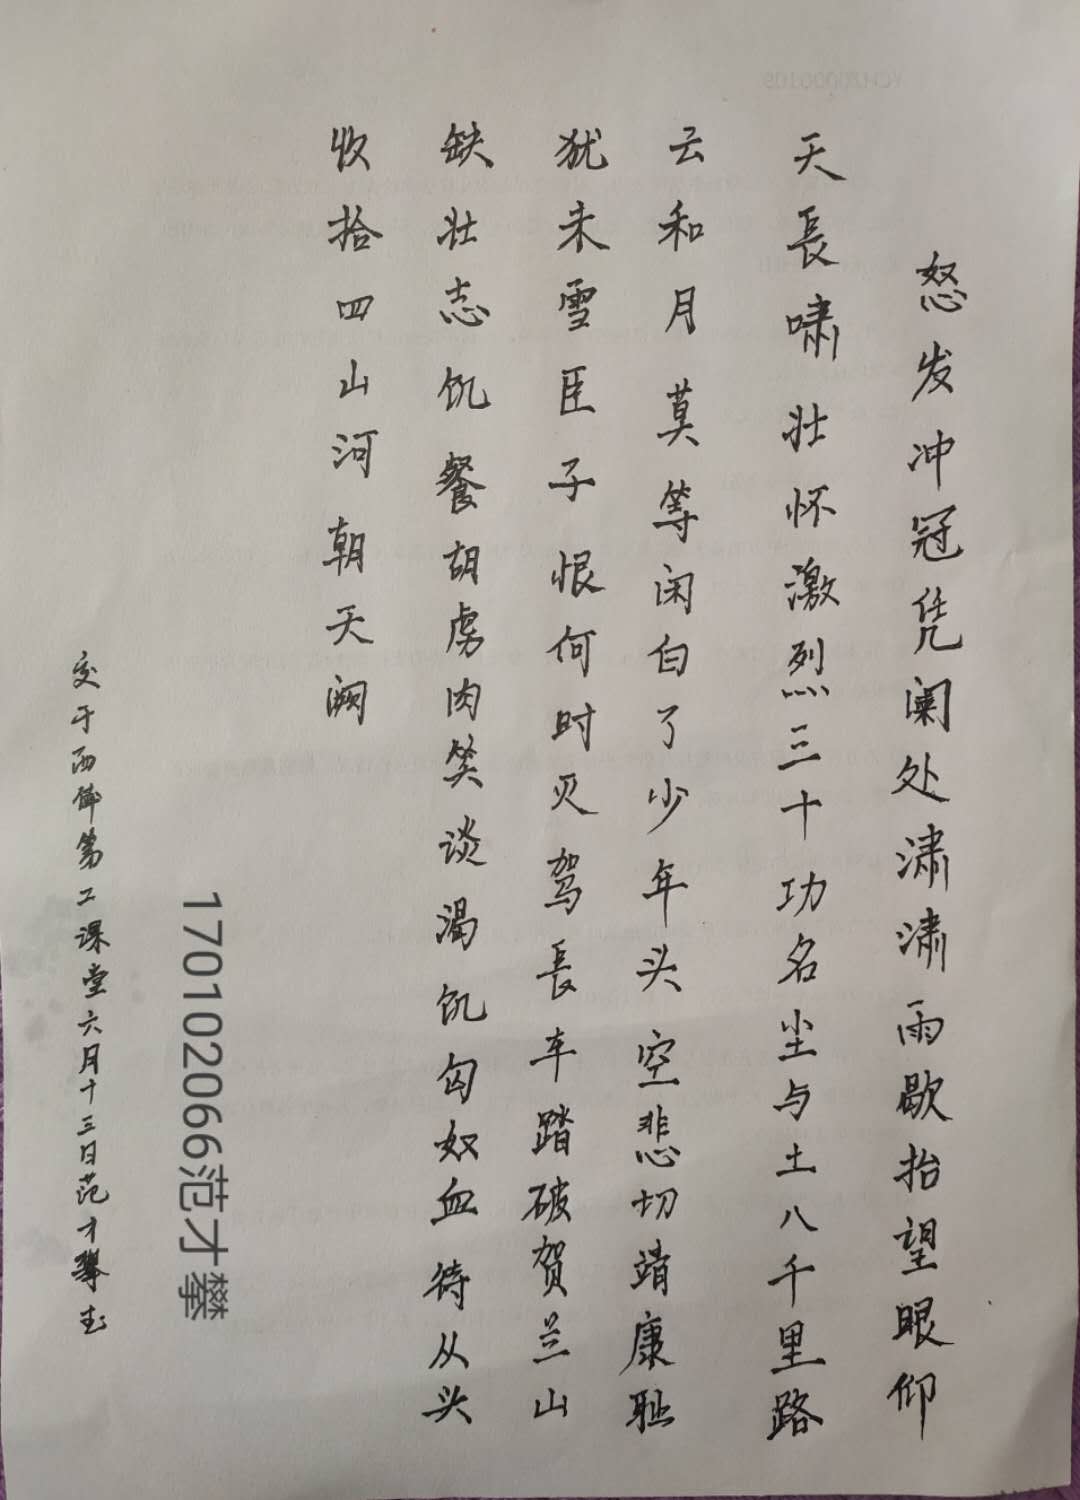 怒发冲冠凭阑处潇潇雨歇抬望眼仰
天長啸壮怀激烈三十功名尘与土八千里路
云和月莫等闲白了少年头空悲切靖康耻
犹未雪臣子恨何时灭驾長车踏破贺兰山
缺壮志饥餐胡虏肉笑谈渴饥匈奴血待从头
收拾四山河朝天阙
170102066范才攀
交于西佛第二课堂六月十三日范才攀